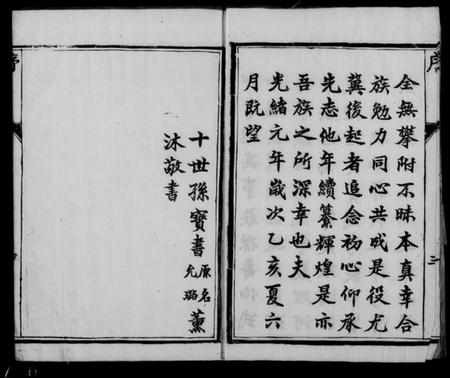 全無攀附不昧本真幸合
族勉力同心共成是役尤
冀後起者追念初心仰承
先志他年續纂輝煌是亦
吾族之所深幸也夫
光緒元年歲次乙亥夏六
月既望
十世孫寶書原名允璐薰
沐敬書
序
三